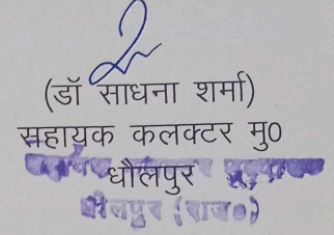 (डॉ साधना शर्मा)
सहायक कलक्टर मु0
धौलपुर
धौलपुर (राज०)